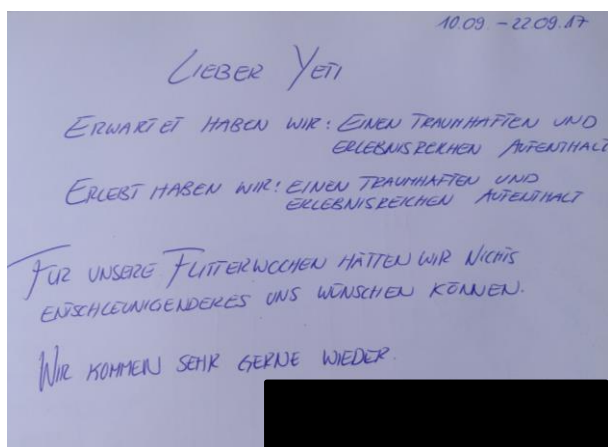 10.09. – 22.09.17
LIEBER YETI
ERWARTET HABEN WIR: EINEN TRAUMHAFTEN UND
ERLEBNISREICHEN AUFENTHALT
ERLEBT HABEN WIR: EINEN TRAUMHAFTEN UND
ERLEBNISREICHEN AUFENTHALT
FÜR UNSERE FLITTERWOCHEN HÄTTEN WIR NICHTS
ENTSCHLEUNIGENDERES UNS WÜNSCHEN KÖNNEN.
WIR KOMMEN SEHR GERNE WIEDER.